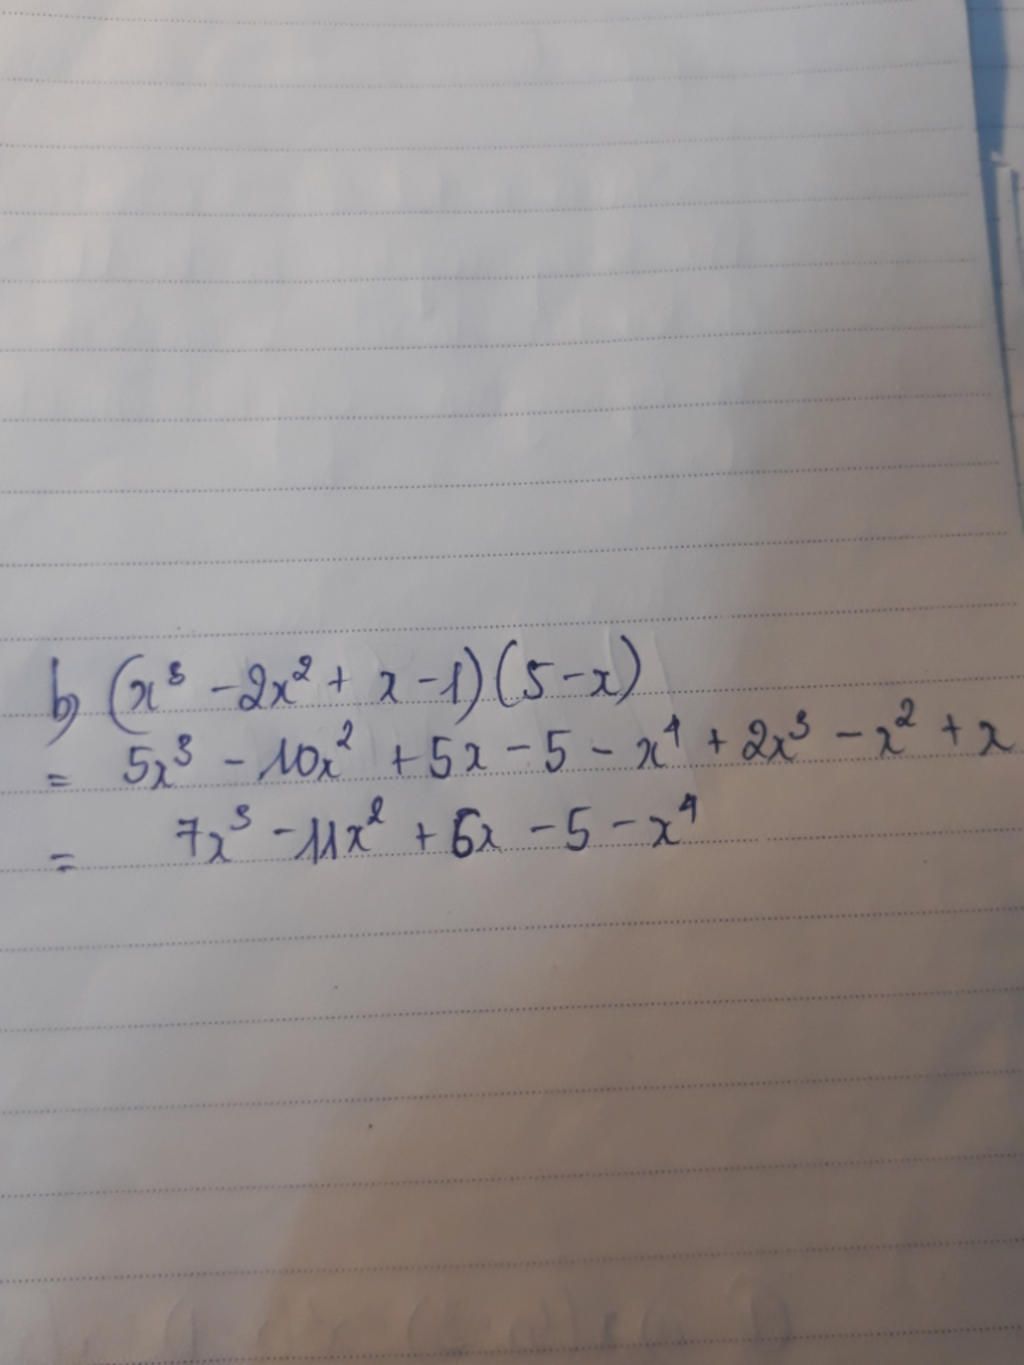 b) (x³ - 2x² + x - 1)(5 - x)
= 5x³ - 10x² + 5x - 5 - x⁴ + 2x³ - x² + x
= 7x³ - 11x² + 6x - 5 - x⁴